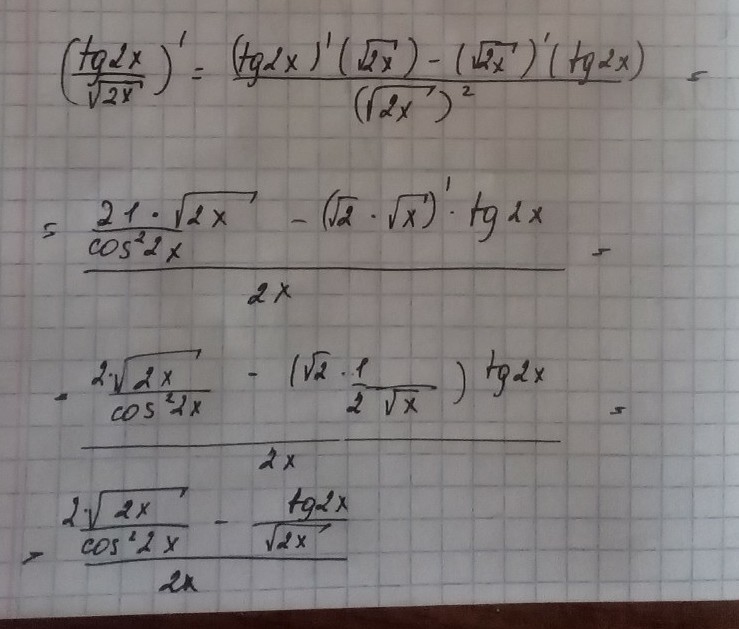 (tg2x/√2x)' = ((tg2x)'(√2x) - (√2x)'(tg2x))/(√2x)² =
= (21/cos²2x · √2x - (√2 · √x)' · tg2x)/2x =
= (2·√2x/cos²2x - (√2 · 1/2√x) tg2x)/2x =
= (2·√2x/cos²2x - tg2x/√2x)/2x